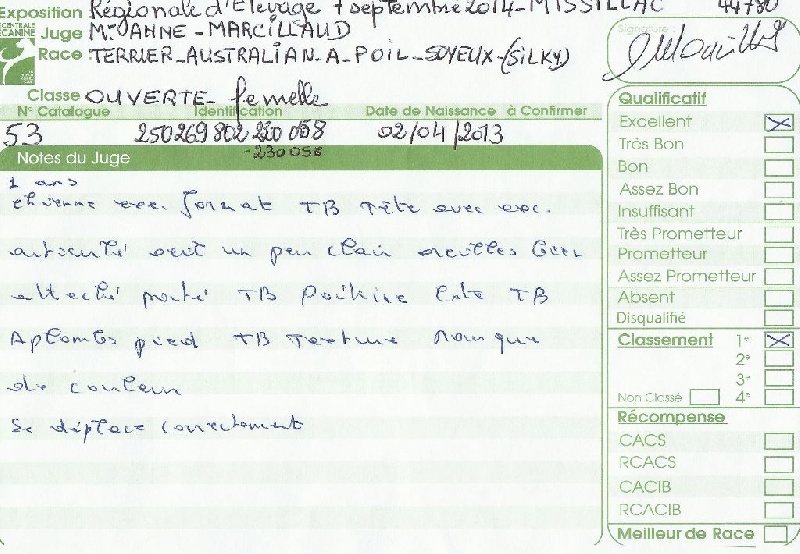 Exposition Régionale d'Elevage 7 septembre 2014 - MISSILLAC 44780
CENTRALE CANINE
Juge Mr ANNE - MARCILLAUD
Signature
Race TERRIER - AUSTRALIAN - A - POIL - SOYEUX - (SILKY)
Classe OUVERTE - femelle
N° Catalogue Identification Date de Naissance à Confirmer
53 250269802230058 02/04/2013
- 230058
Notes du Juge
1 ans
chienne exc. format TB Tête avec exc.
oeil un peu clair oreilles bien
attaché porté TB Poitrine TB
Aplombs pied TB Texture Manque
de couleur
Se déplace correctement
Qualificatif
Excellent X
Très Bon
Bon
Assez Bon
Insuffisant
Très Prometteur
Prometteur
Assez Prometteur
Absent
Disqualifié
Classement 1er X
2e
3e
Non Classé 4e
Récompense
CACS
RCACS
CACIB
RCACIB
Meilleur de Race